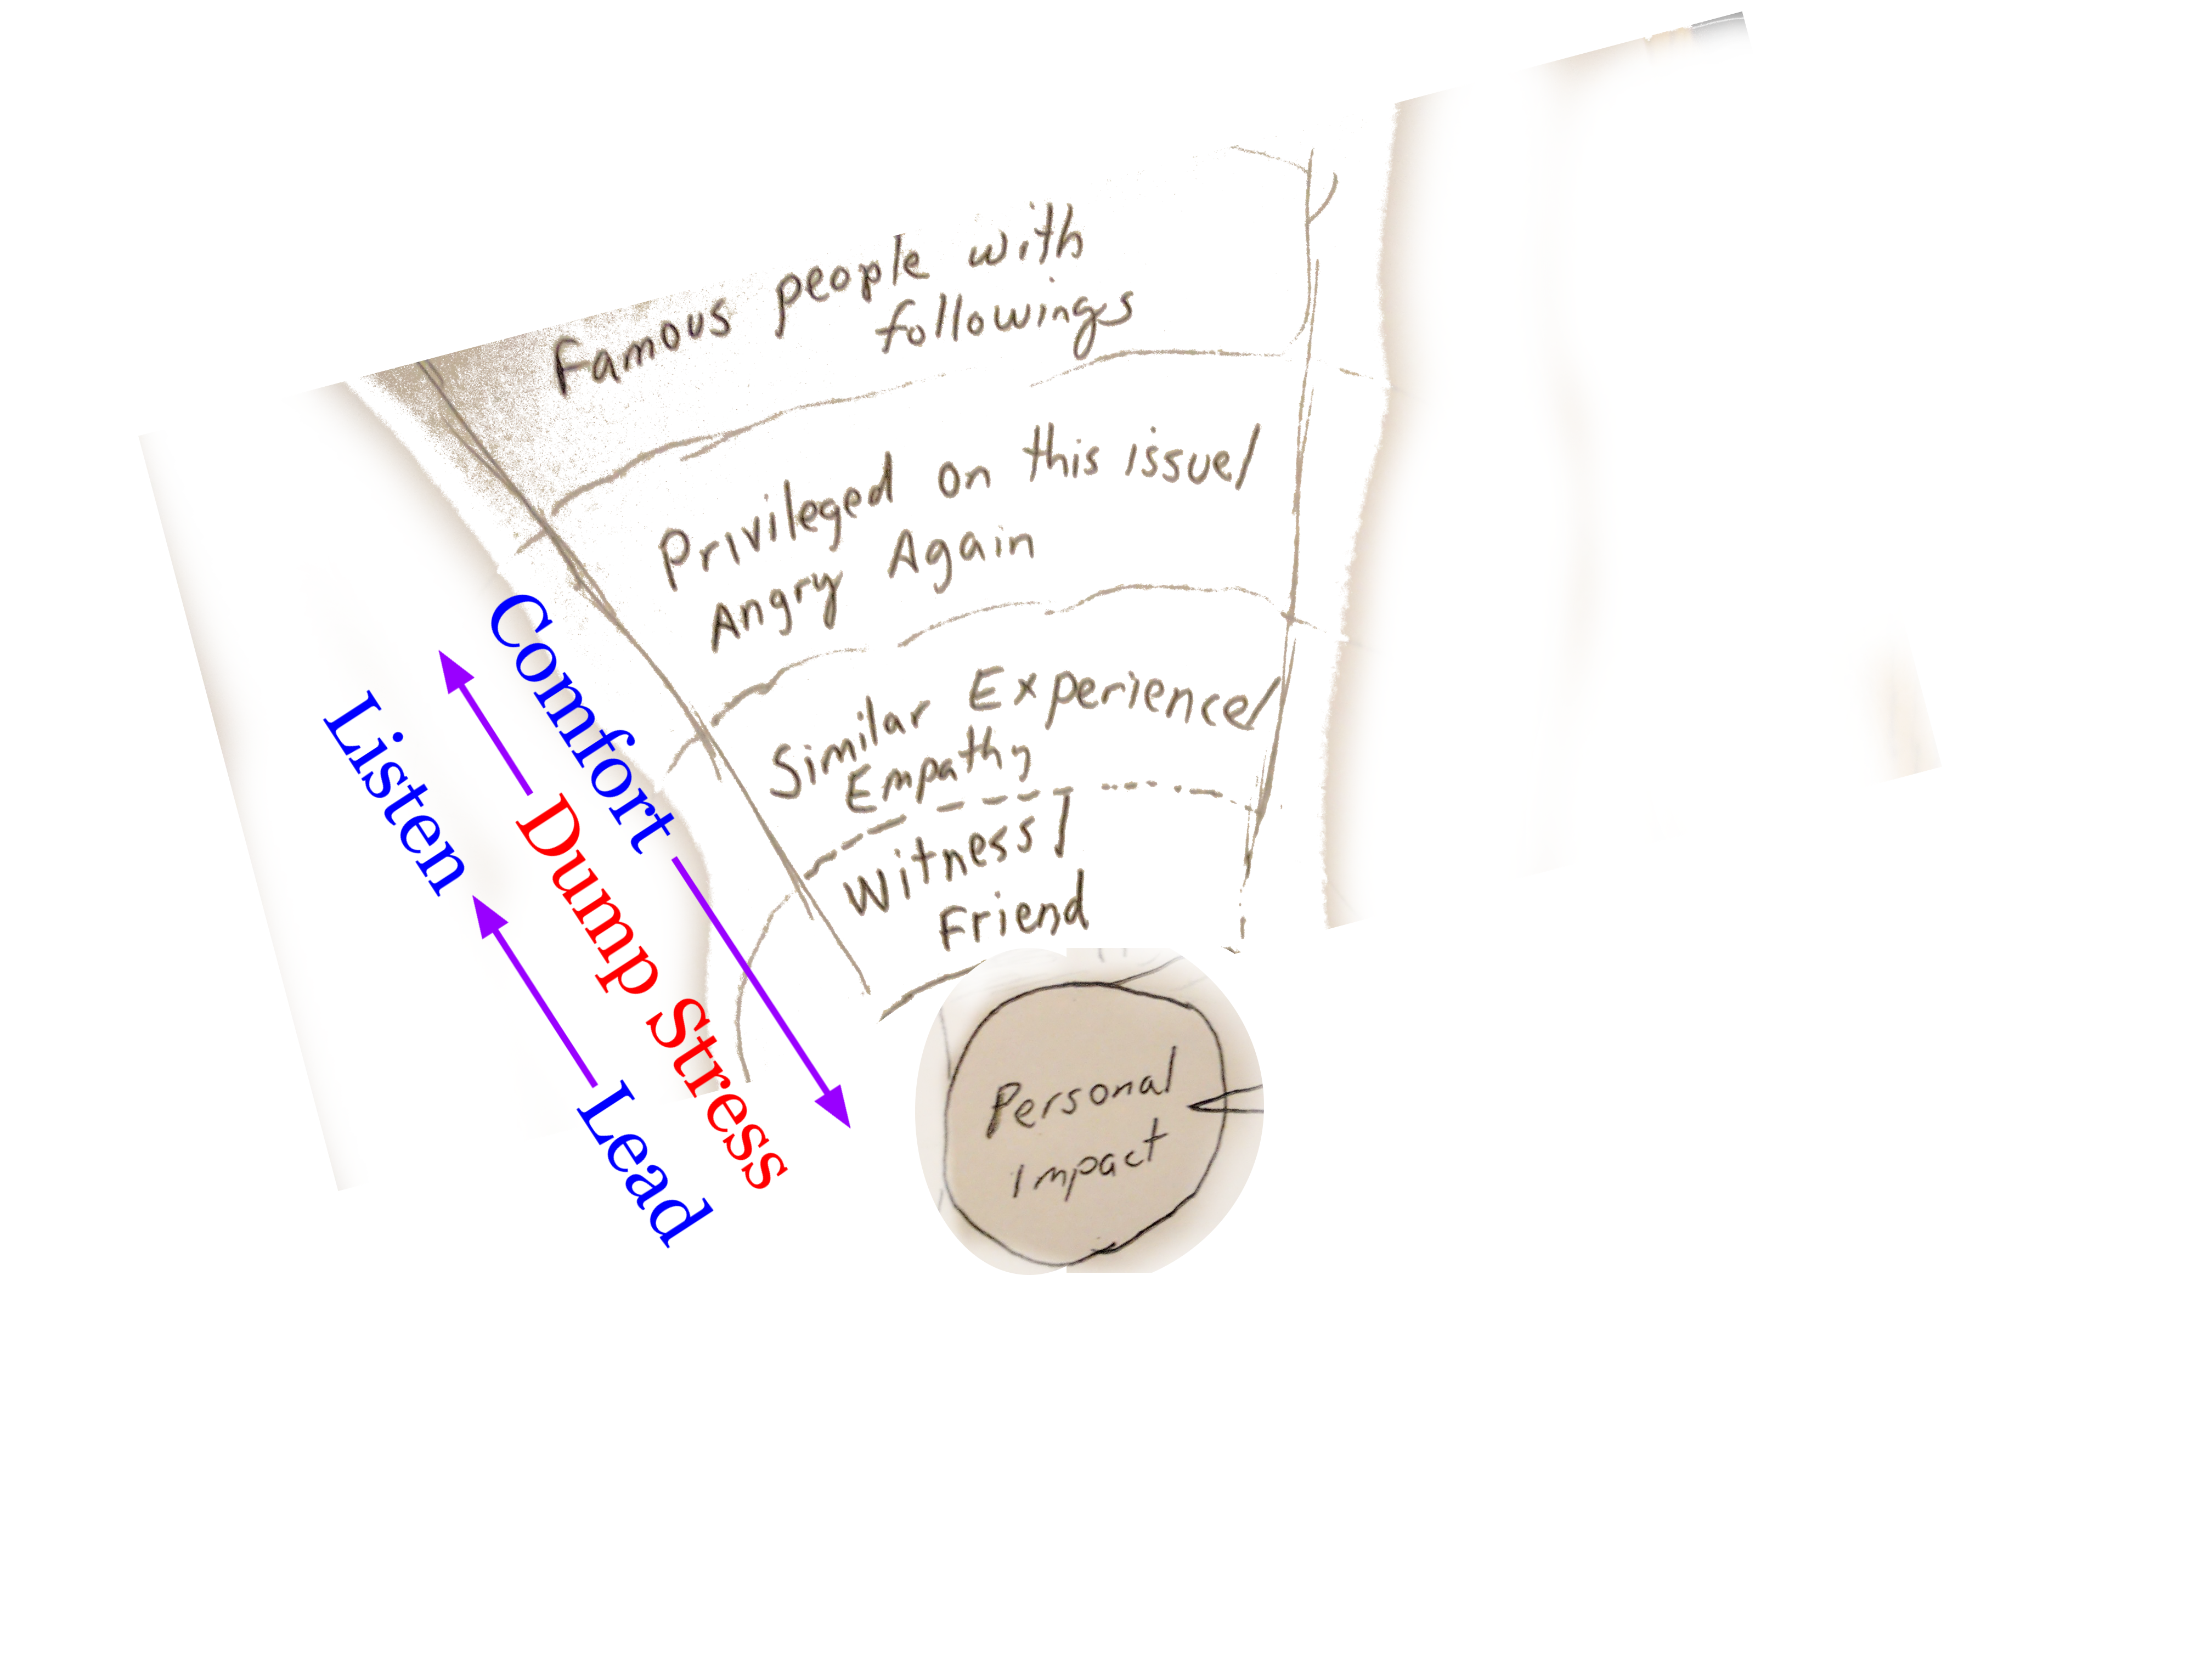 Famous people with
followings
Privileged on this issue/
Angry Again
Similar Experience/
Empathy
Witness/
Friend
Personal
Impact
Comfort
Dump Stress
Listen
Lead